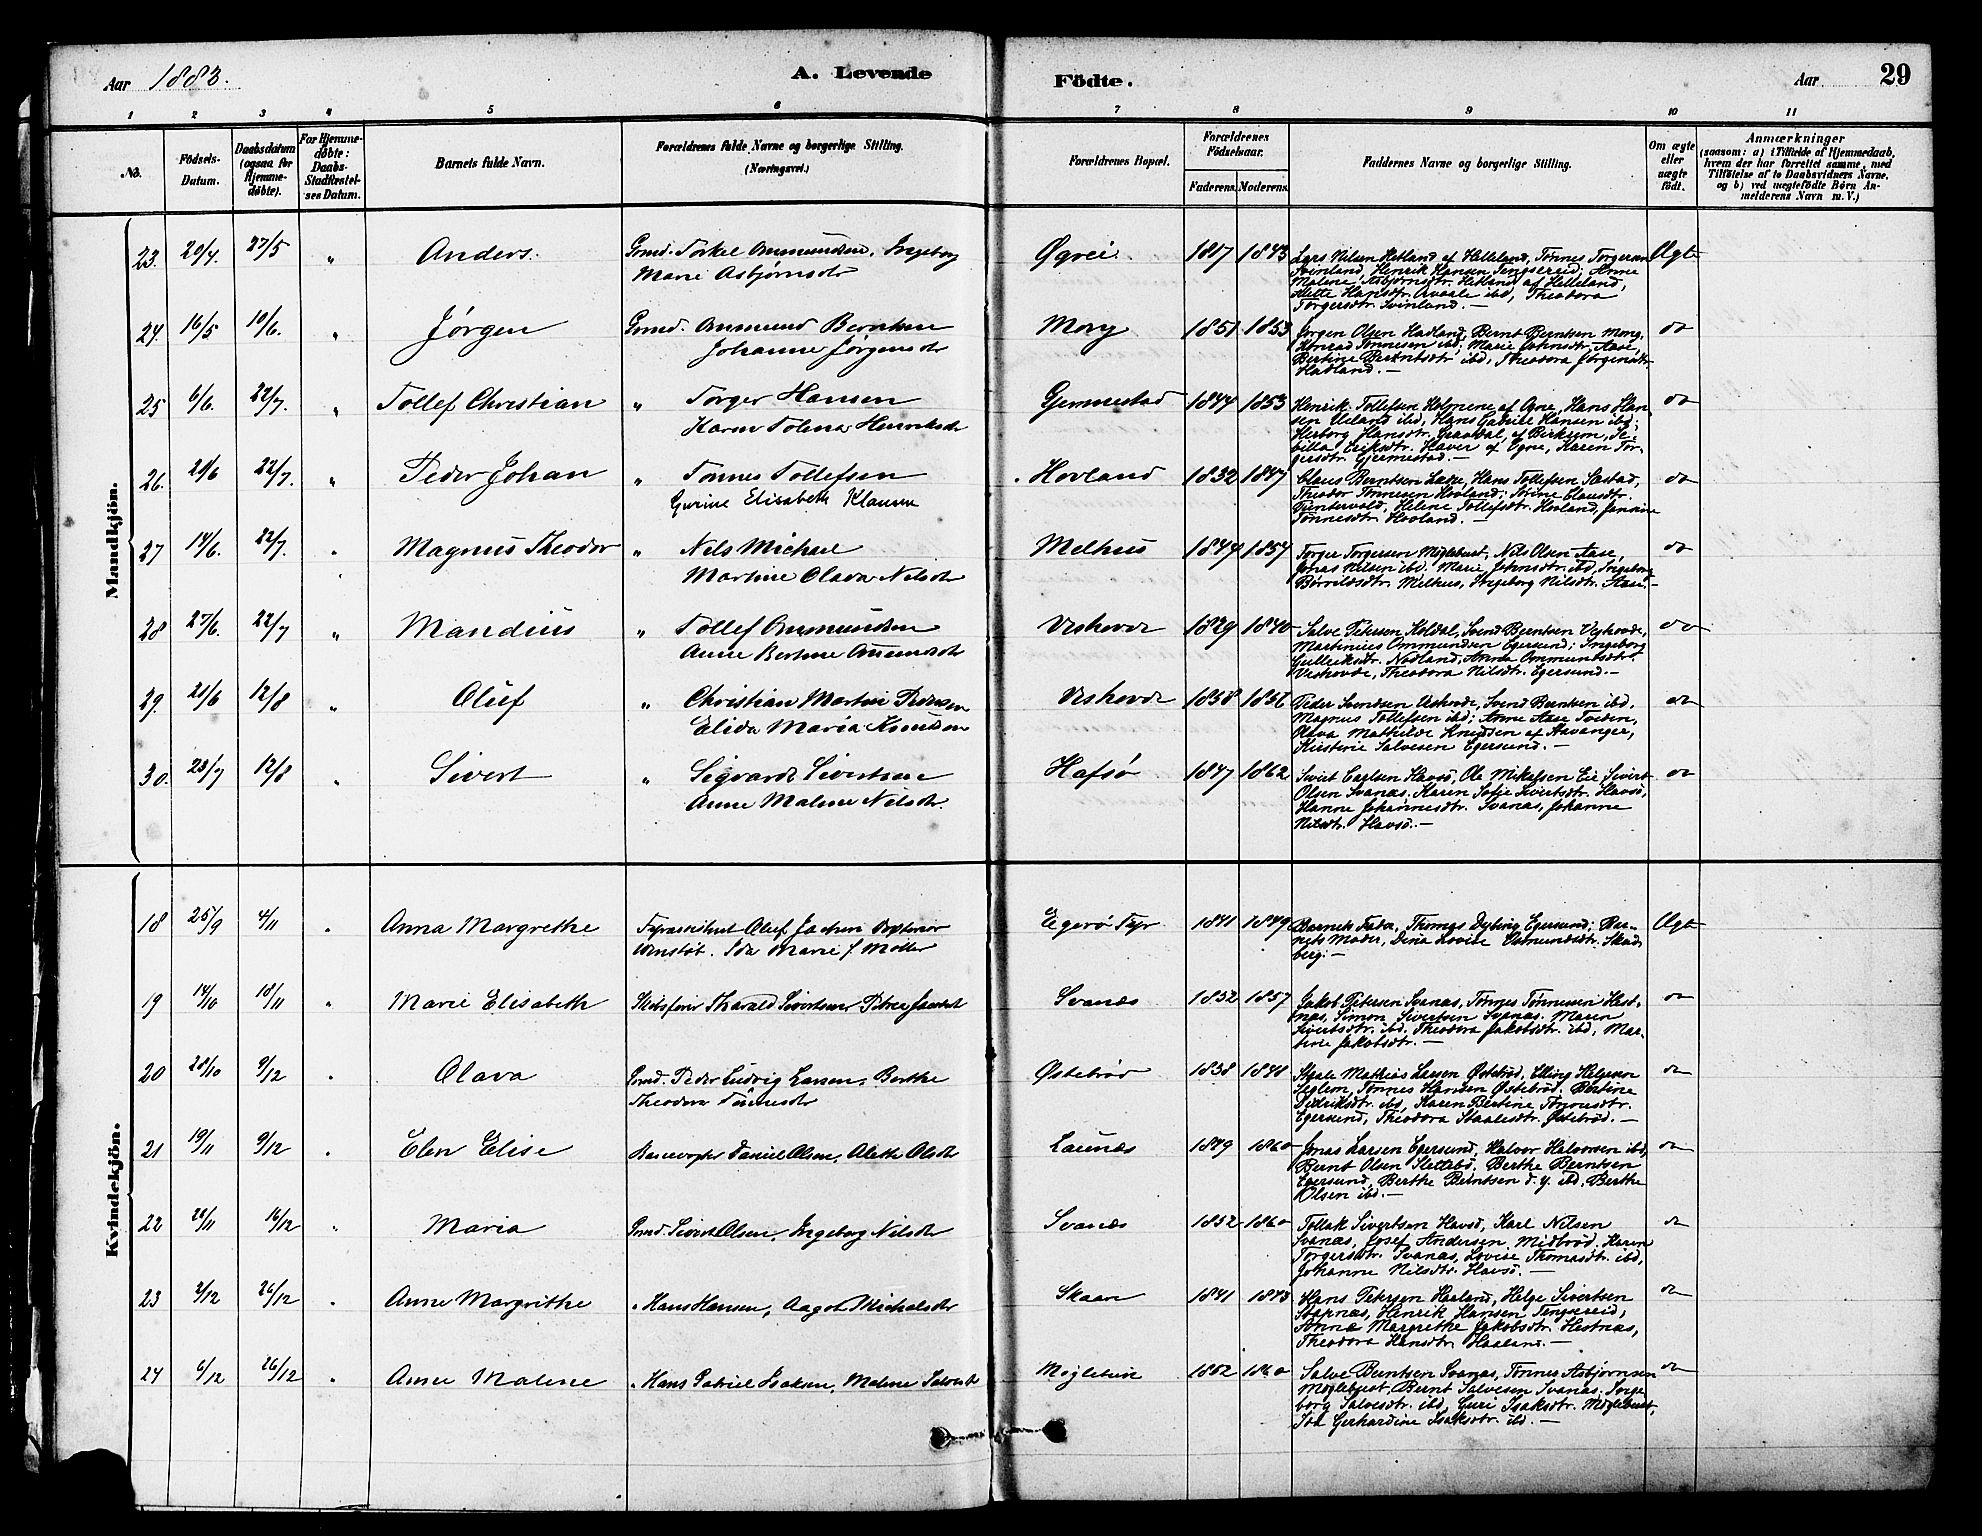 Aar 1883.
A. Levende
Födte.
Aar
29
1 2 3 4 5 6 7 8 9 10 11
No.
Födsels-Datum.
Daabsdatum (ogsaa for Hjemme-døbte).
For Hjemme-døbte: Daabs-Stadfæstelses Datum.
Barnets fulde Navn.
Forældrenes fulde Navne og borgerlige Stilling.
(Næringsvei.)
Forældrenes Bopæl.
Forældrenes Födselsaar.
Faderens. Moderens.
Faddernes Navne og borgerlige Stilling.
Om ægte eller uægte födt.
Anmærkninger
(saasom: a) i Tilfælde af Hjemmedaab, hvem der har forrettet samme, med Tilföielse af to Daabsvidners Navne, og b) ved uægtefödte Børn Anmelderens Navn m. V.)
Mandkjön.
23. 20/4 27/5 " Anders. Gmd. Torkel Ommundsen, Ingeborg
Marie Asbjørnsdtr
Øgrei 1817 1843
Lars Nilsen Hetland af Helleland, Tønnes Torgersen
Svinland, Henrik Hansen Tengsereid, Anne
Malene Asbjørnsdtr. Hetland af Helleland,
Mette Hansdtr. ibd, Theodora
Torgersdtr. Svinland. —
Ægte
24. 16/5 10/6. " Jørgen Gmd. Ommund Berntsen
Johanne Jørgensdtr
Mong 1851 1853
Jørgen Olsen Hadland, Bernt Berntsen Mong,
Konrad Tønnesen ibd; Marie Johnsdtr. Aase,
Bertine Berentsdtr ibd, Theodora Jørgensdtr.
Hadland. —
do
25 6/6. 22/7. " Tollef Christian " Torger Hansen
Karen Tolena Henriksdtr
Gjermestad 1844 1853
Henrik Tollefsen Holmene af Ogne, Hans Han-
sen Ueland ibd, Hans Gabriel Hansen ibd;
Herborg Hansdtr. Graadal, af Birkrem, Se-
villa Eriksdtr. Haver af Ogne, Karen Tor-
gersdtr. Gjermestad. —
do
26. 20/6 22/7. " Peder Johan " Tønnes Tollefsen
Gurine Elisabeth Klausen
Hovland 1832 1847
Claus Berntsen Lade, Hans Tollefsen Sæstad,
Theodor Tønnesen Hovland; Tørine Clausdtr.
Puntervold, Helene Tollefsdtr. Hovland, Jensine
Tønnesdtr. Hovland. —
do
27 14/6. 22/7. " Magnus Theodor " Nils Michael
Martine Olava Nilsdtr
Melhus 1844 1854
Torger Torgersen Møglebust, Nils Olsen Aase,
Jonas Nilsen ibd. Marie Johnsdtr. ibd, Ingeborg
Børrildsdtr. Melhus, Ingeborg Nilsdtr. Aase. —
do
28 27/6. 22/7 " Mandius " Tollef Ommundsen
Anne Bertine
Veshovde 1829 1840
Salve Petersen Koldal, Svend Berntsen Veshovde,
Martinius Ommundsen Egersund; Ingeborg
Gulleiksdtr. Nodland, Anna Ommundsdtr.
Veshovde, Theodora Nilsdtr. Egersund. —
do
29. 21/6 12/8 " Oluf " Christian Martin Pedersen
Elida Maria Knudsen
Veshovde 1858 1856
Peder Svendsen Veshovde, Svend Berntsen ibd.
Magnus Tollefsen ibd; Anne Aase Tveden,
Olava Mathilde Knudsen af Stavanger,
Kirstine Salvesen Egersund. —
do
30. 23/7 12/8 " Sivert " Sigvardt Sivertsen
Anne Malene Nilsdtr.
Hafsø 1847 1862
Sivert Carlsen Havsö, Ole Mikalsen Eie Sivert
Olsen Svanæs. Karen Sofie Sivertsdtr. Havsö,
Hanne Johannesdtr. Svanæs, Johanne
Nilsdtr. Havsö. —
do
Kvindekjön.
18 25/9 4/11 " Anna Margrethe Fyrassistent Oluf Jochen
Wenstöb. Ida Marie f. Møller
Egerö Fyr 1841 1849
Barnets Fader, Thomas Dybing Egersund; Bar-
nets Moder, Dina Lovise Osmundsdtr. Skad-
berg. —
Ægte
19 14/10 18/11 " Marie Elisabeth Skibsfører Tharald Sivertsen Petrea Jacobsdtr
Svanæs 1832 1857
Jakob Petersen Svanæs, Tønnes Tønnesen Hest-
næs, Simon Sivertsen Svanæs. Maren
Sivertsdtr. ibd. Theodora Jakobsdtr. ibd, Mar-
tine Jakobsdtr. —
do
20 28/10 9/12 " Olava Gmd. Peder Ludvig Larsen, Berthe
Theodora Tönnesdtr
Østebrød 1838 1848
Staale Mathias Larsen Østebröd, Elling Helgesen
Seglem, Tønnes Hansen Østebröd. Bertine
Didriksdtr. ibd, Karen Bertine Tønnesdtr.
Egersund, Theodora Staalesdtr. Østebröd. —
do
21 19/11 9/12 " Elen Elise Banevogter Daniel Olsen, Alette Olsdtr
Launæs 1849 1860
Jonas Larsen Egersund, Halvor Halvorsen ibd,
Bernt Olsen Slettebö. Berthe Berntsen
Egersund, Berthe Berntsen d. y. ibd, Berthe
Olsen ibd. —
do
22 20/11 16/12 " Maria Gmd. Sivert Olsen, Ingeborg Nilsdtr
Svanæs 1852 1860
Tollak Sivertsen Havsö, Karl Nilsen
Svanæs, Josef Andersen, Midbröd. Karen
Torgersdtr. Svanæs, Lovise Thomasdtr. ibd,
Johanne Nilsdtr. Havsö. —
do
23 2/12 26/12 " Anne Margrethe " Hans Hansen, Aagot Michalsdtr
Skaar 1841 1843
Hans Petersen Haaland, Helge Sivertsen
Stapnæs, Henrik Hansen Tengsereid;
Anna Margrethe Jakobsdtr. Hestnæs,
Theodora Hansdtr. Haaland. —
do
24 6/12 26/12 " Anne Malene " Hans Gabriel Isaksen, Malene Salvesdtr
Møglebust 1852 1860
Salve Berntsen Svanæs, Tønnes Asbjørnsen
Møglebust, Bernt Salvesen Svanæs; Inge-
borg Salvesdtr. ibd, Guri Isaksdtr. Møglebust,
Ida Gerhardine Isaksdtr. ibd. —
do